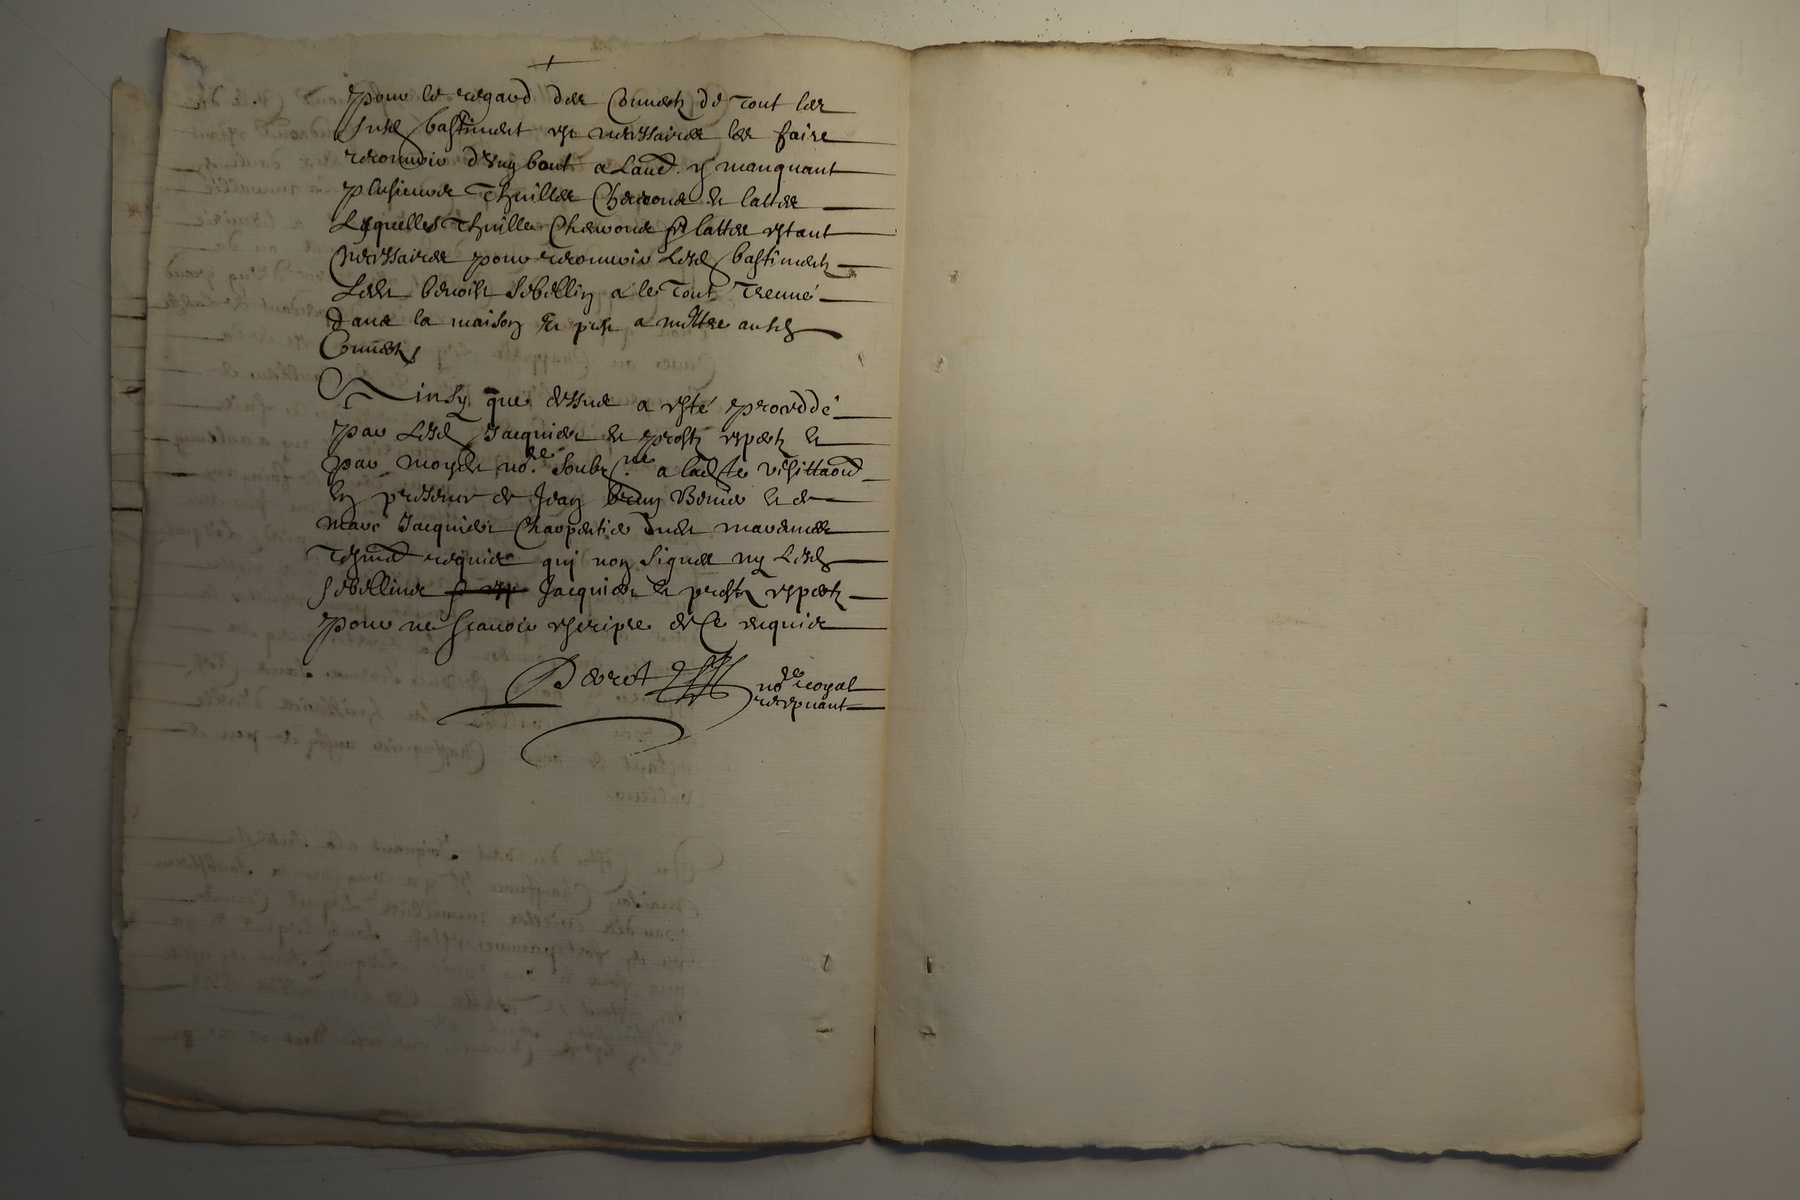 pour le regard des Couuertz de tout les
susd bastiment est necessaires les faire
recouurir d'ung bout a Laud. y manquant
plusieurs Thuilles Cheurons et lattes
Lesquelles Thuilles Cheurons et lattes estant
Necessaires pour recouurir Lesd bastimentz
Ledt benoist Sebellin a le Tout Treuué
dans la maison et prest a mettre ausd
Couuertz
Ainsy que dessus a esté proceddé
par Lesd Jacquier et prostz expertz et
par moydt nore. Soubz.ne a lade visittaon
En presence de Jean Benier et de
Marc Jacquier Charpentier dudt
Tesmd requis qui non Signes ny Lesd
Sebellins Jacquier et prostz expertz
pour ne scauoir escripre de Ce requis
nore royal
receuant